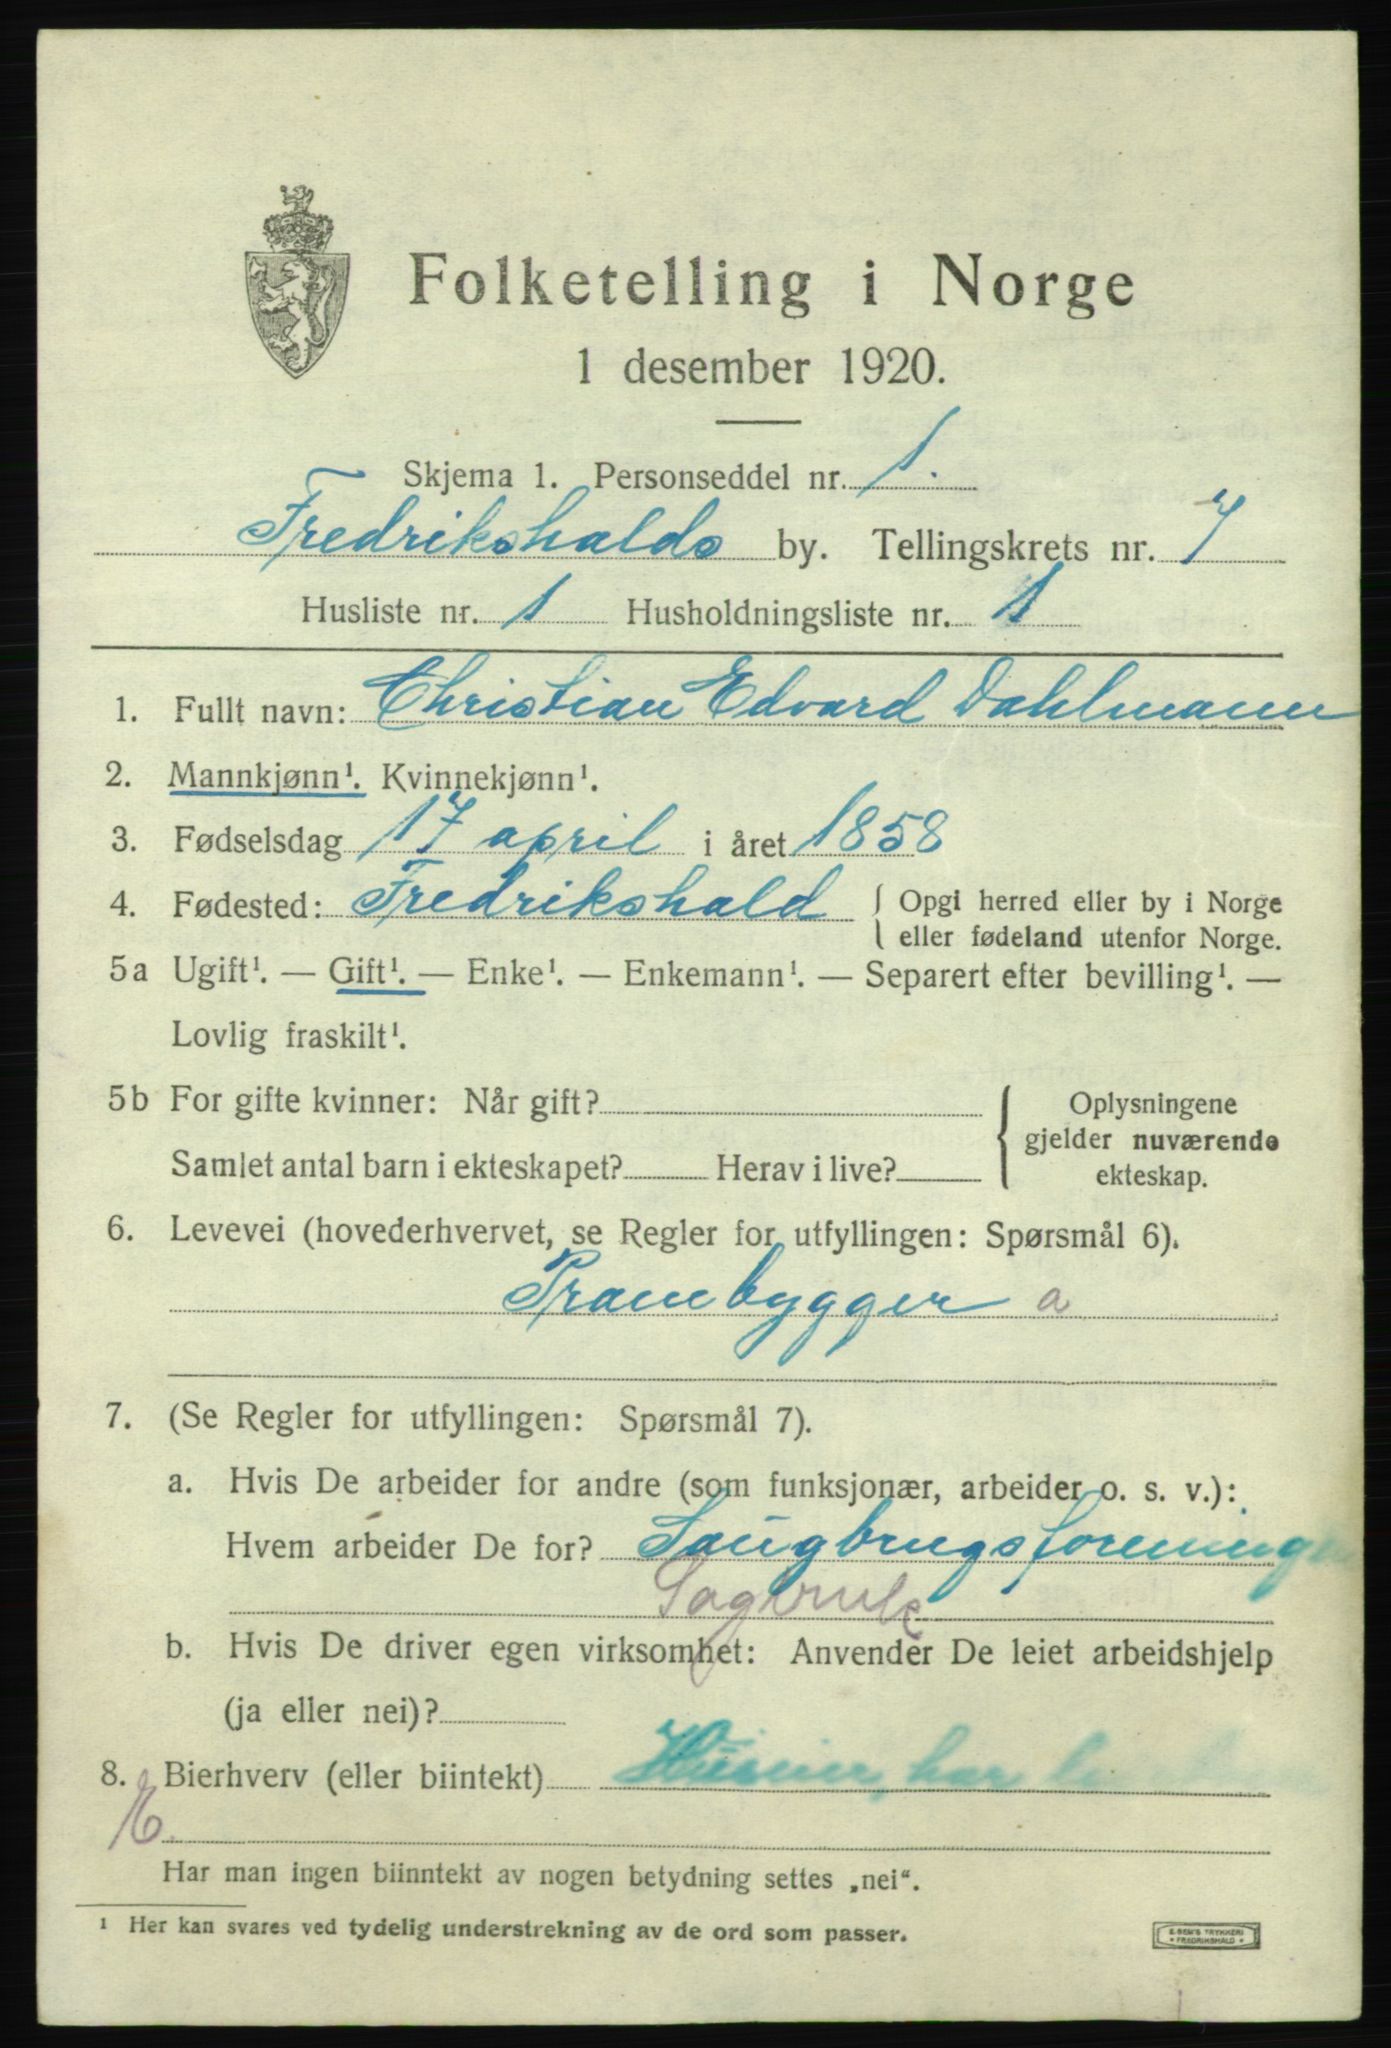 Folketelling i Norge
1 desember 1920.
Skjema 1. Personseddel nr. 1.
Fredrikshalds by. Tellingskrets nr. 7
Husliste nr. 1 Husholdningsliste nr. 1
1. Fullt navn: Christian Edvard Dahlmann
2. Mannkjønn¹. Kvinnekjønn¹.
3. Fødselsdag 17 april i året 1858
4. Fødested: Fredrikshald { Opgi herred eller by i Norge
eller fødeland utenfor Norge.
5a Ugift¹. — Gift¹. — Enke¹. — Enkemann¹. — Separert efter bevilling¹. —
Lovlig fraskilt¹.
5b For gifte kvinner: Når gift? { Oplysningene
gjelder nuværende
Samlet antal barn i ekteskapet? Herav i live?
ekteskap.
6. Levevei (hovederhvervet, se Regler for utfyllingen: Spørsmål 6).
Prambygger a
7. (Se Regler for utfyllingen: Spørsmål 7).
a. Hvis De arbeider for andre (som funksjonær, arbeider o. s. v.):
Hvem arbeider De for? Saugbrugsforeningen
Sagbruk
b. Hvis De driver egen virksomhet: Anvender De leiet arbeidshjelp
(ja eller nei)?
8. Bierhverv (eller biintekt) Huseier, har
E
Har man ingen biinntekt av nogen betydning settes „nei“.
¹ Her kan svares ved tydelig understrekning av de ord som passer.
E. SEM'S TRYKKERI
* FREDRIKSHALD *